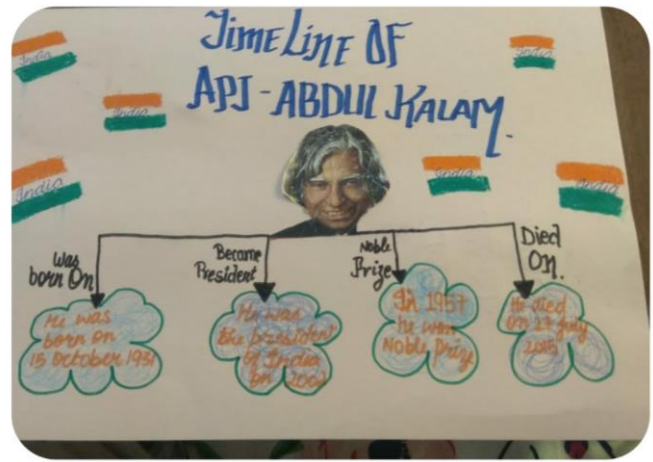 TimeLine OF
APJ - ABDUL KALAM.
India
India
India
India
India
India
Was
born On
Became
President
Noble
Prize
Died
On.
He was
born on
15 October 1931
He was
the president
of India
on 2002
In 1957
he won
Noble Prize
He died
on 27 July
2015